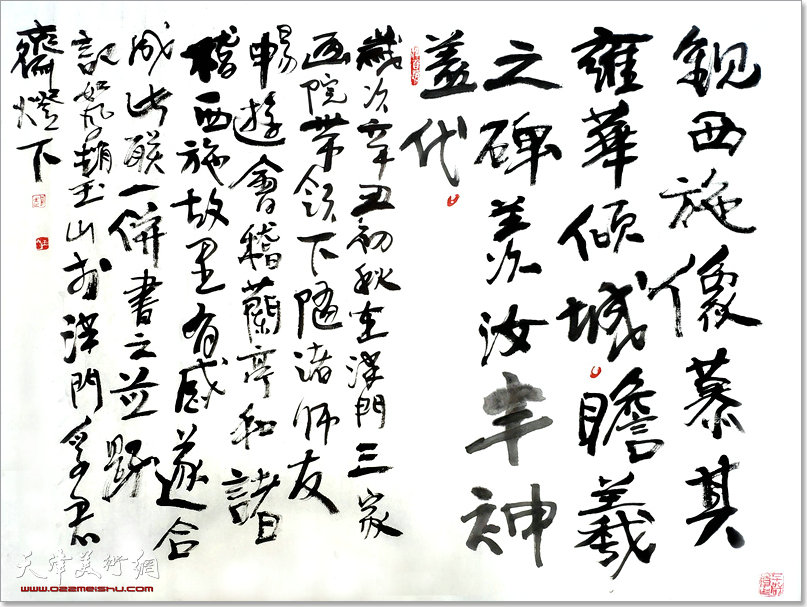 觀西施像慕其
雍華傾城瞻羲
之碑羨汝丰神
盖代
歲次辛丑初秋在津門三家
画院带領下隨諸师友
暢遊會稽蘭亭和諸
稽西施故里有感遂合
成此联一併書之並題
記趙玉山於津門
齋燈下
天津美術網
www.022meishu.com